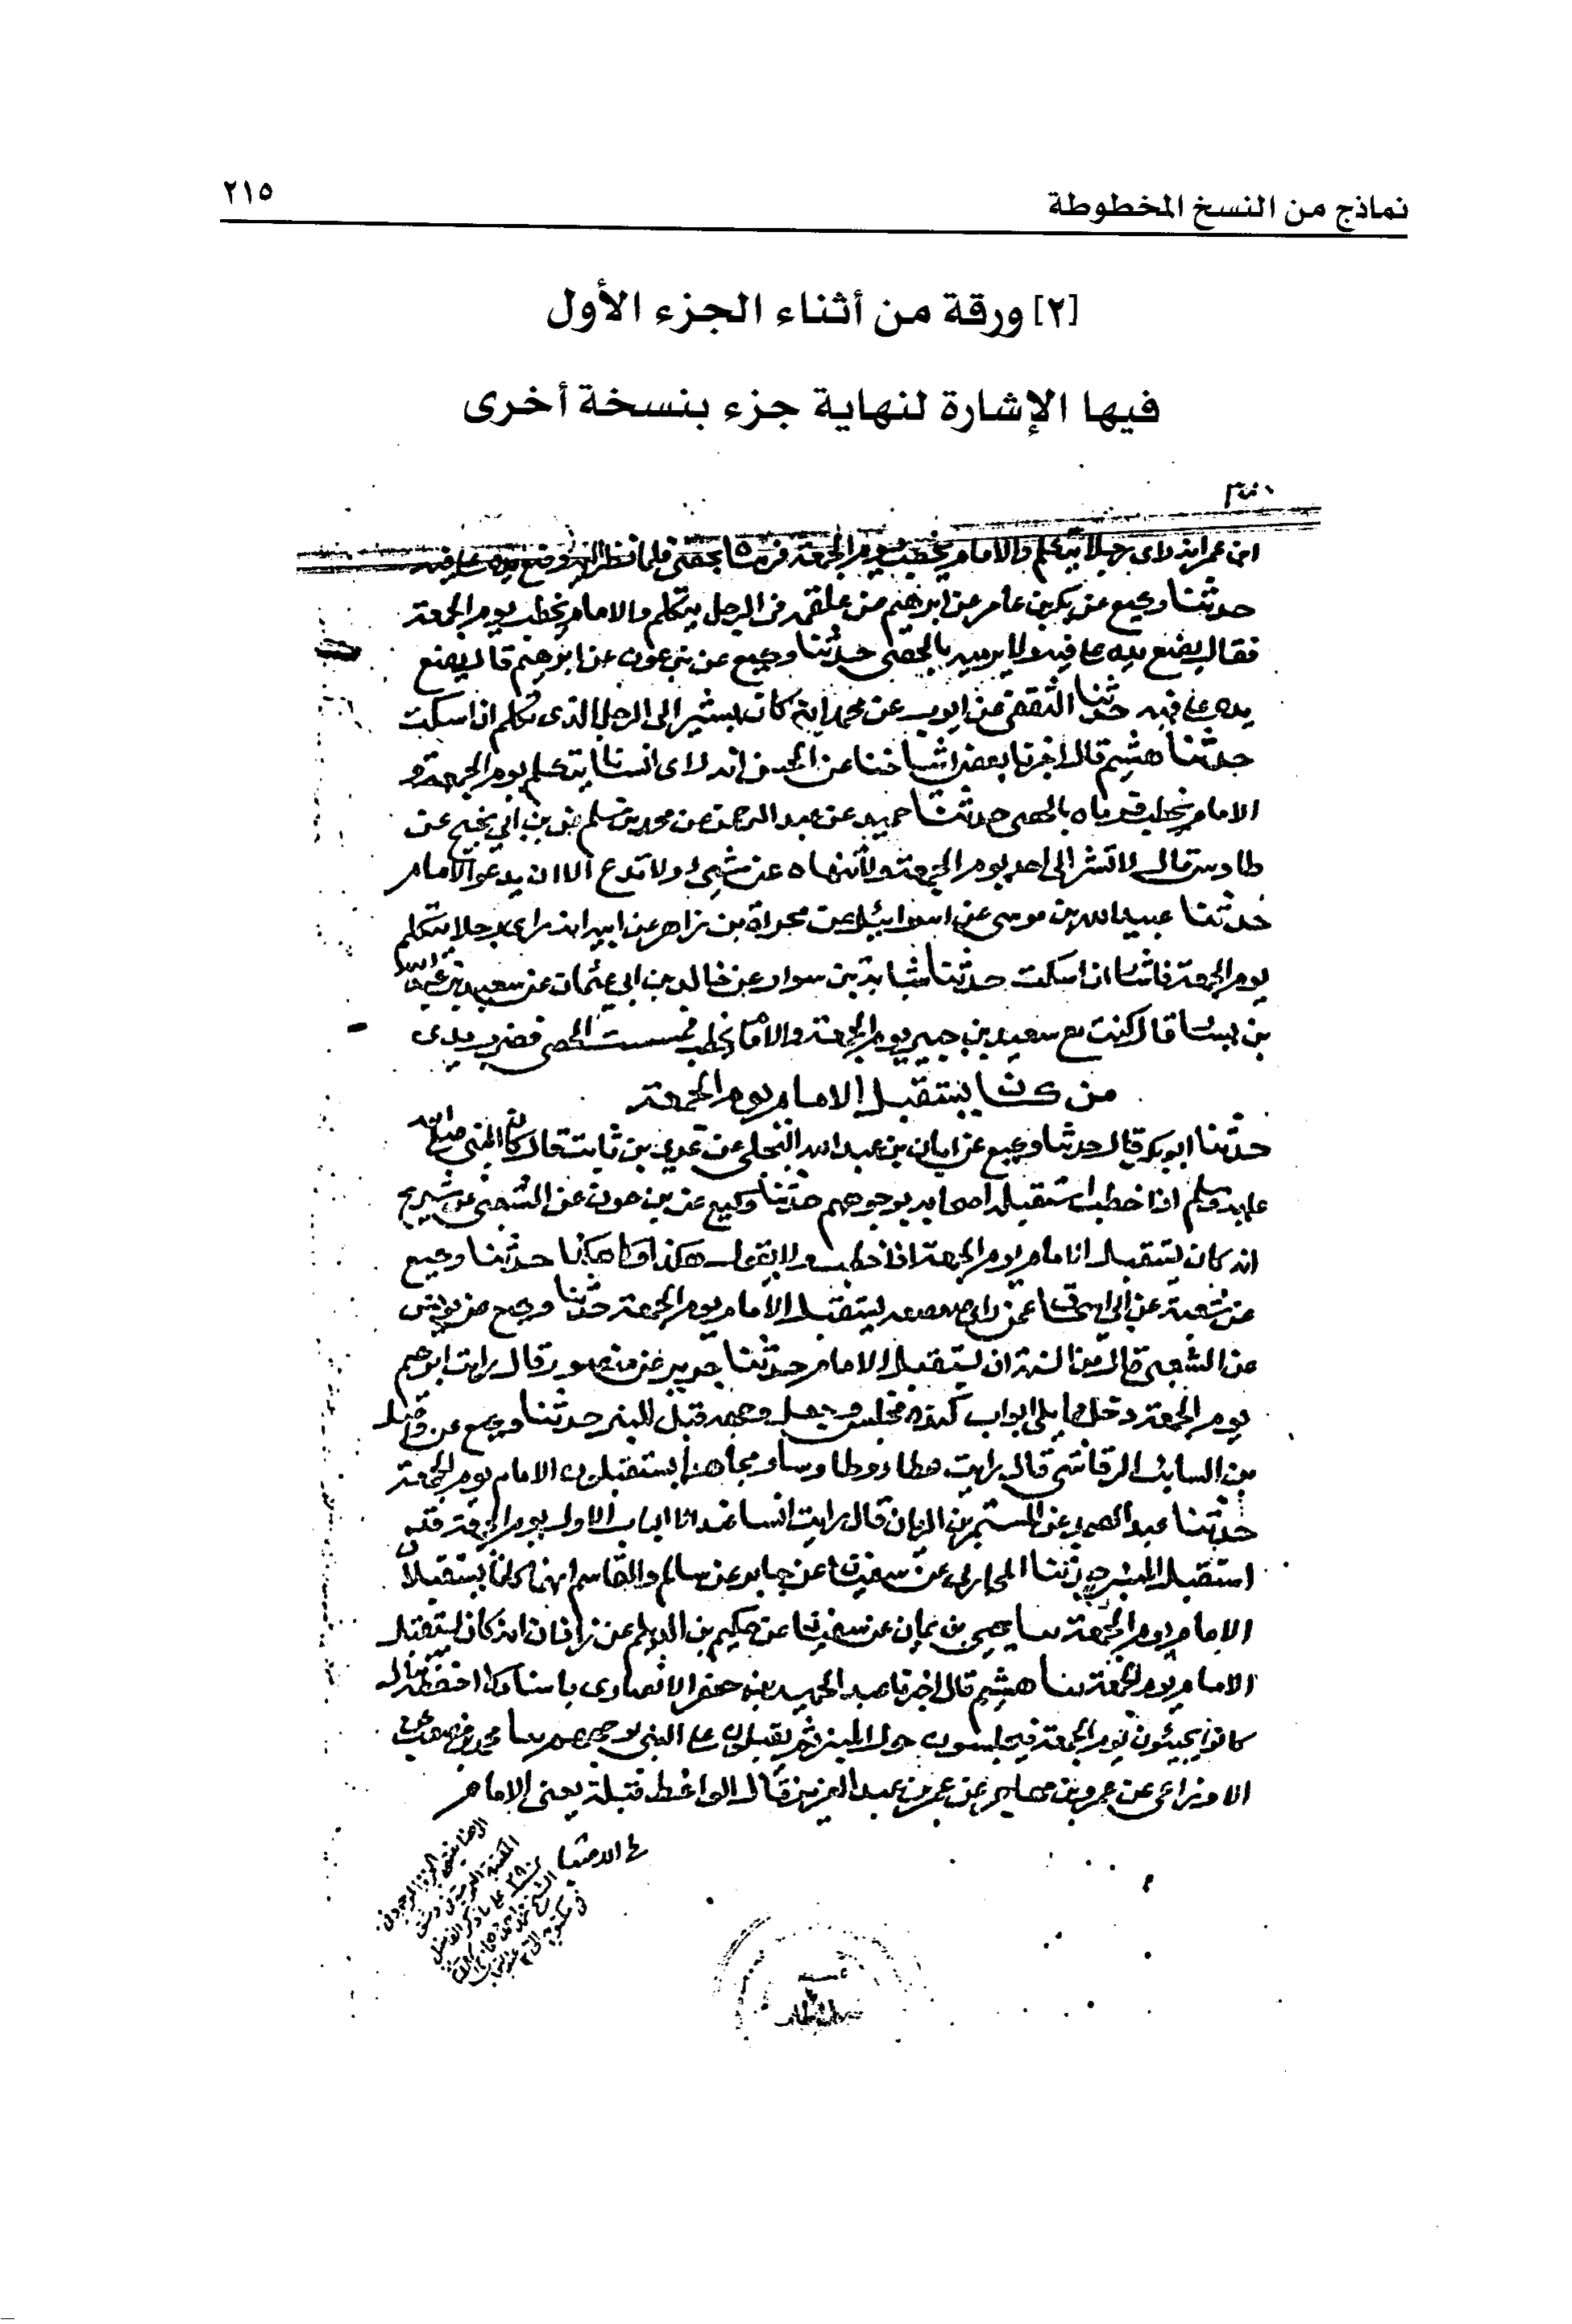 نماذج من النسخ المخطوطة
٢١٥
[٢] ورقة من أثناء الجزء الأول
فيها الإشارة لنهاية جزء بنسخة أخرى
ابن عمر انه راى رجلا يتكلم والامام يخطب يوم الجمعة فرماه بحصى فلما نظر اليه وضع يده على فيه
حدثنا وكيع عن بكير بن عامر عن ابرهيم عن علقمه فى الرجل يتكلم والامام يخطب يوم الجمعة
فقال يضع يده على فيه ولا يرميه بالحصى حدثنا وكيع عن بن عون عن ابرهيم قال يضع
يده على فيه حدثنا الثقفى عن ايوب عن محمد انه كان يشير الى الرجل الذى تكلم ان اسكت
حدثنا هشيم قال اخبرنا بعض اشياخنا عن الحسن انه راى انسانا يتكلم يوم الجمعة و
الامام يخطب فرماه بالحصى حدثنا حميد عن عبد الرحمن عن محمد بن مسلم عن بن ابي نجيح عن
طاوس قال لا تشر الى احد يوم الجمعة ولا تنهاه عن شيء ولا تدع الا ان يدعو الامام
حدثنا عبيد الله بن موسى عن اسرائيل عن مجزاة بن زاهر عن ابيه انه راى رجلا يتكلم
يوم الجمعة فاشار ان اسكت حدثنا شبابة بن سوار عن خالد بن ابي عثمان عن سعيد بن عبد الله
بن يسار قال كنت مع سعيد بن جبير يوم الجمعة والامام يخطب فمسست الحصى فضرب يدى
من كان يستقبل الامام يوم الجمعة
حدثنا ابو بكر قال حدثنا وكيع عن ابان بن عبد الله البجلي عن عدي بن ثابت قال كان النبي صلى الله
عليه وسلم اذا خطب استقبله اصحابه بوجوههم حدثنا وكيع عن بن عون عن الشعبي عن شريح
انه كان يستقبل الامام يوم الجمعة اذا خطب ولا يقول هكذا ولا هكذا حدثنا وكيع
عن شعبة عن ابي اسحق عمن راى يستقبل الامام يوم الجمعة حدثنا وكيع عن يونس
عن الشعبي قال من السنة ان يستقبل الامام حدثنا جرير عن منصور قال رايت ابرهيم
يوم الجمعة دخل مما يلى ابواب كندة فجلس وجعل وجهه قبل المنبر حدثنا وكيع عن واصل
بن السايب الرقاشي قال رايت عطاء وطاوسا ومجاهدا يستقبلون الامام يوم الجمعة
حدثنا عبد الصمد عن المستمر بن الريان قال رايت انسا عند الباب الاول يوم الجمعة قد
استقبل المنبر حدثنا المحاربي عن سفين عن جابر عن سالم والقاسم انهما كانا يستقبلان
الامام يوم الجمعة ثنا يحيى بن يمان عن سفين عن حكيم بن الديلم عن زاذان انه كان يستقبل
الامام يوم الجمعة ثنا هشيم قال اخبرنا عبد الحميد بن جعفر الانصارى باسناد
كانوا يجيئون يوم الجمعة فيجلسون حول المنبر ثم يقبلون على النبي بوجوههم ثنا محمد بن مصعب عن
الاوزاعى عن عمرو بن مهاجر عن عمر بن عبد العزيز قال الواعظ قبلة يعنى الامام